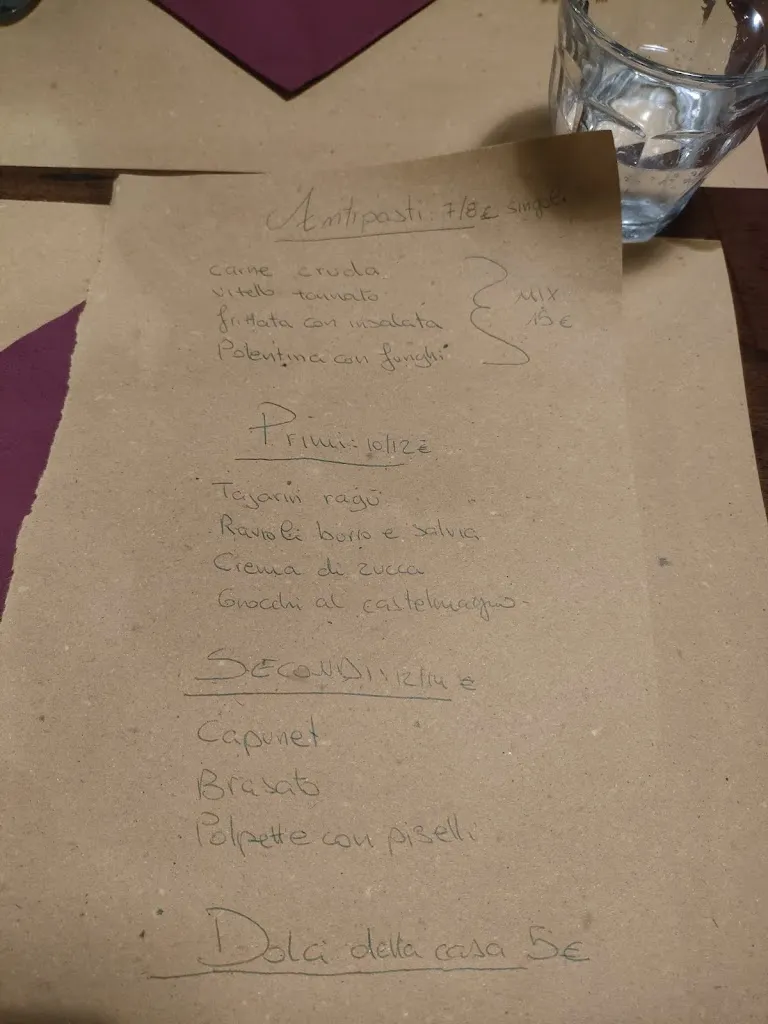 Antipasti: 7/8 € singoli
carne cruda
vitello tonnato
frittata con insalata
Polentina con funghi
MIX
15 €
Primi: 10/12 €
Tajarin ragù
Ravioli burro e salvia
Crema di zucca
Gnocchi al castelmagno.
SECONDI: 12/14 €
Capunet
Brasato
Polpette con piselli
Dolci della casa 5€